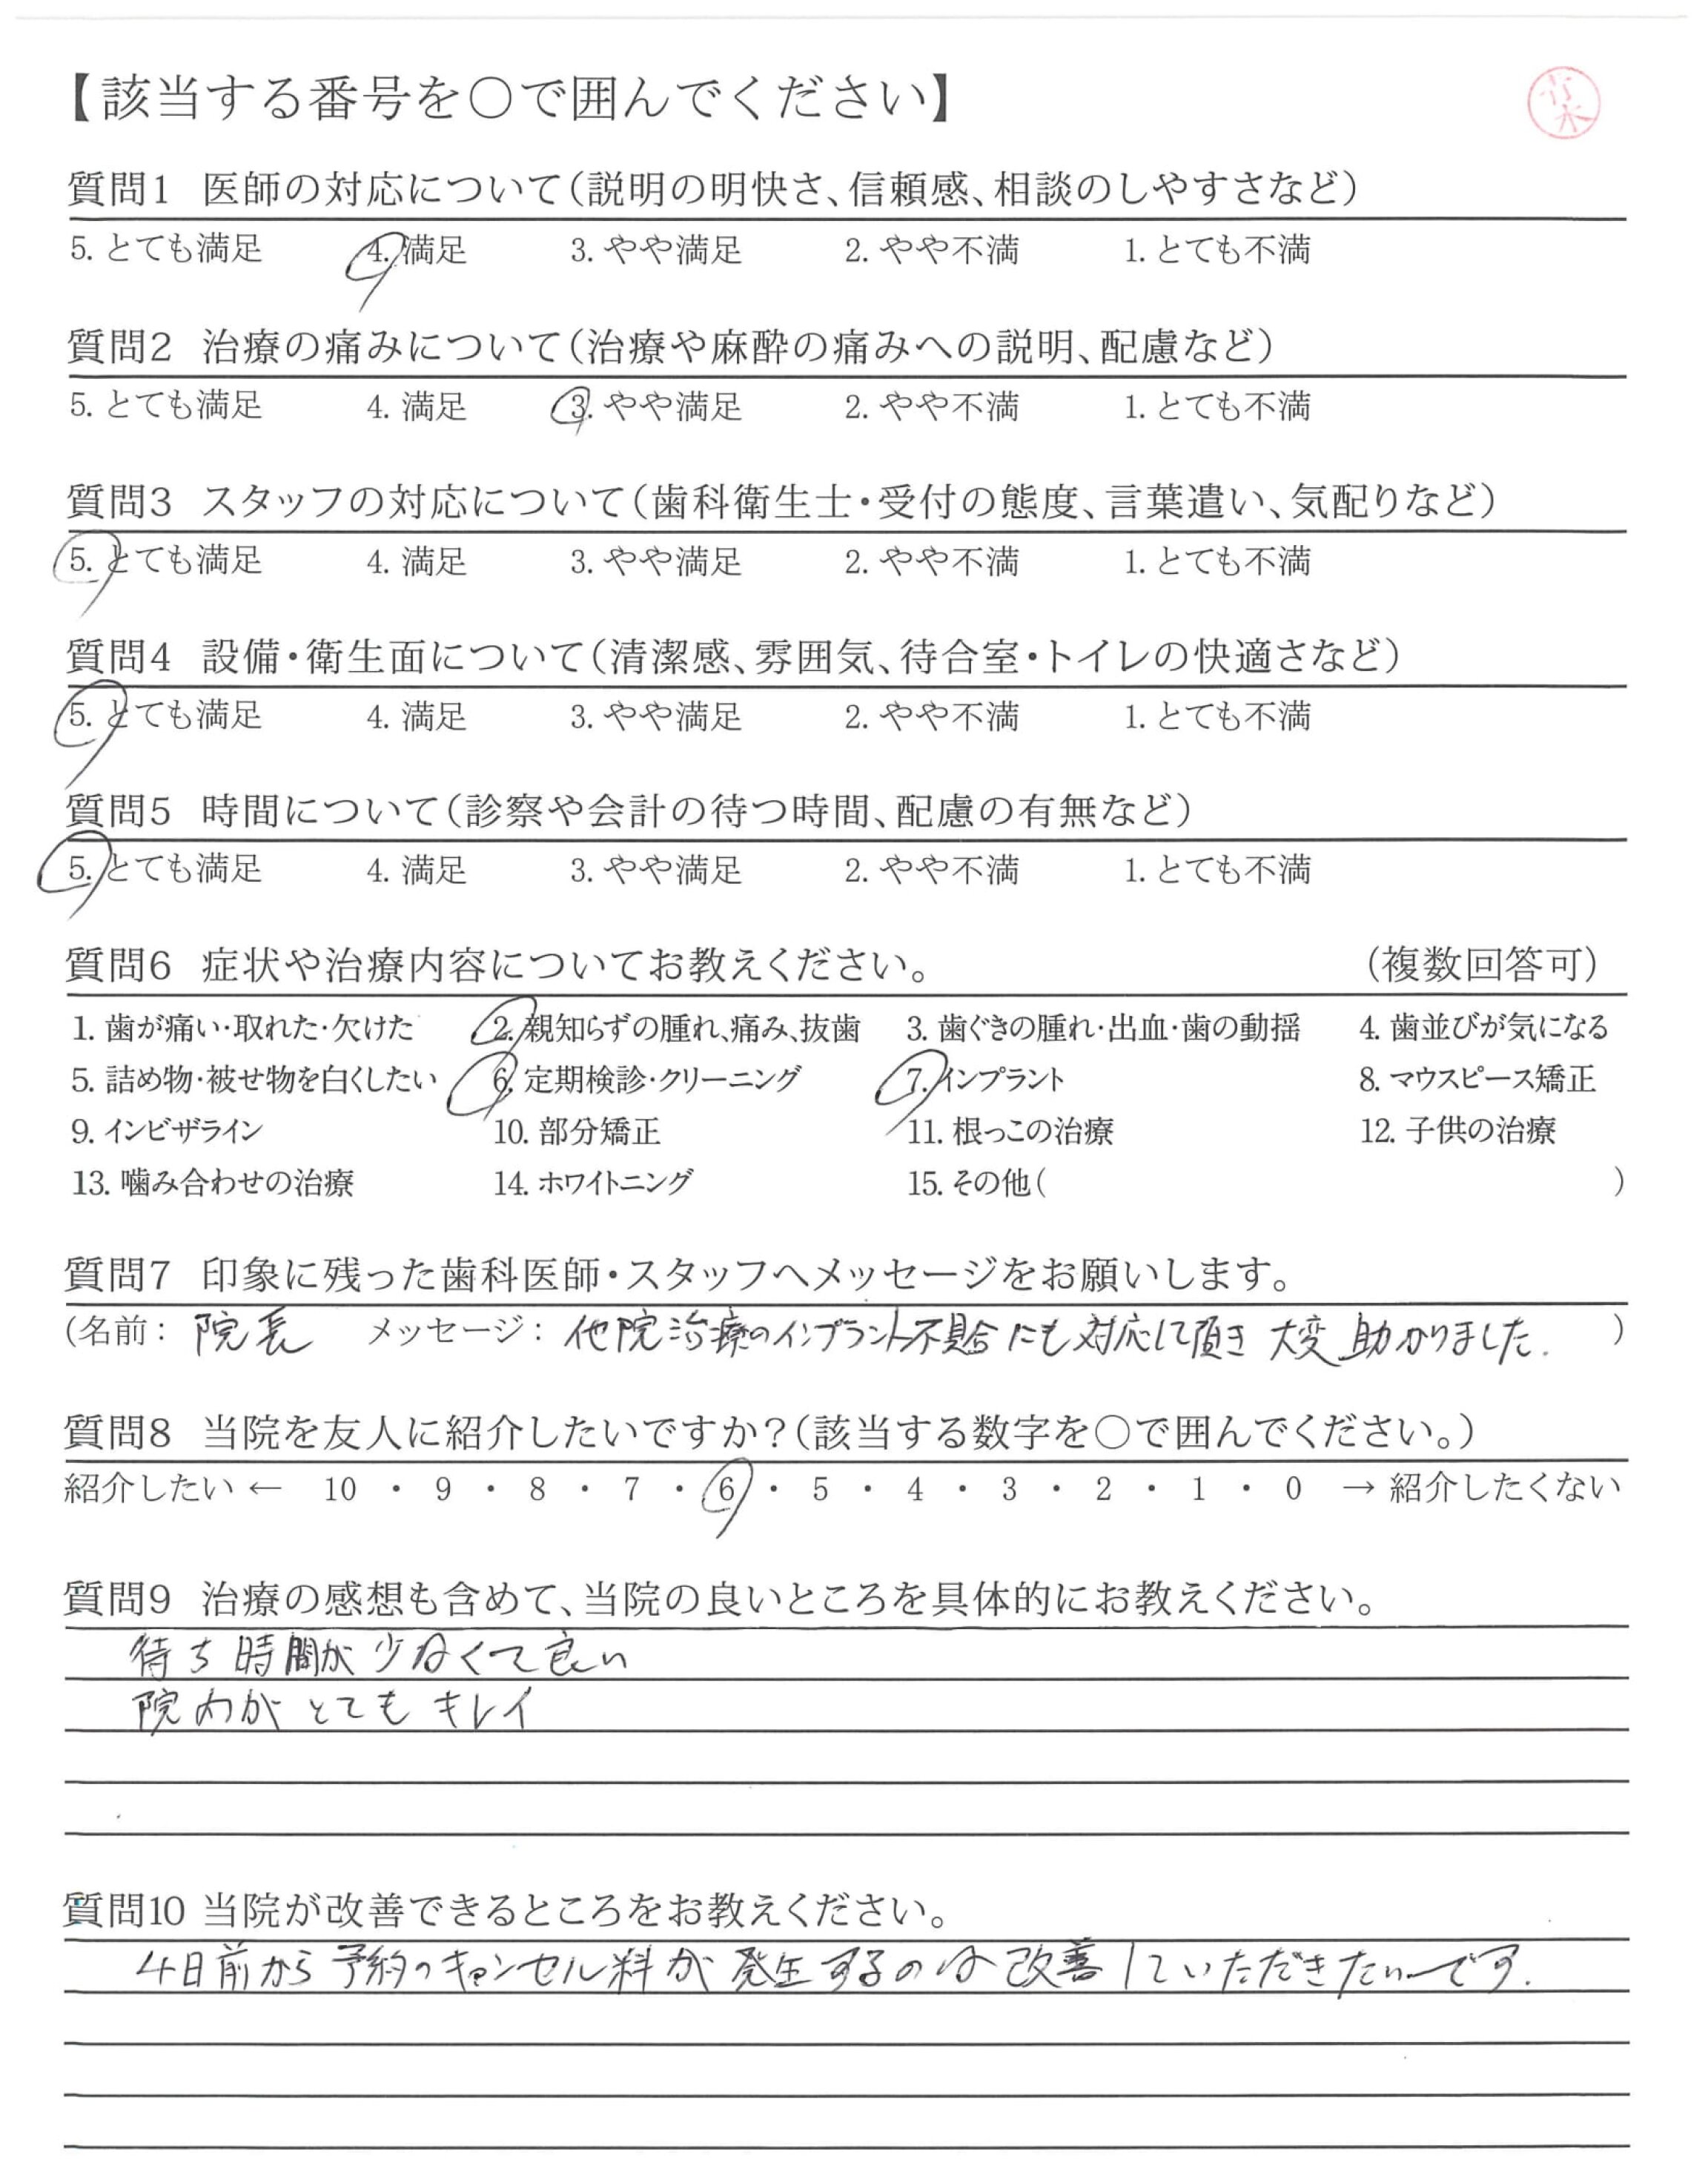 【該当する番号を○で囲んでください】
質問1 医師の対応について(説明の明快さ、信頼感、相談のしやすさなど)
5. とても満足 4. 満足 3. やや満足 2. やや不満 1. とても不満
質問2 治療の痛みについて(治療や麻酔の痛みへの説明、配慮など)
5. とても満足 4. 満足 3. やや満足 2. やや不満 1. とても不満
質問3 スタッフの対応について(歯科衛生士・受付の態度、言葉遣い、気配りなど)
5. とても満足 4. 満足 3. やや満足 2. やや不満 1. とても不満
質問4 設備・衛生面について(清潔感、雰囲気、待合室・トイレの快適さなど)
5. とても満足 4. 満足 3. やや満足 2. やや不満 1. とても不満
質問5 時間について(診察や会計の待つ時間、配慮の有無など)
5. とても満足 4. 満足 3. やや満足 2. やや不満 1. とても不満
質問6 症状や治療内容についてお教えください。 (複数回答可)
1. 歯が痛い・取れた・欠けた 2. 親知らずの腫れ、痛み、抜歯 3. 歯ぐきの腫れ・出血・歯の動揺 4. 歯並びが気になる
5. 詰め物・被せ物を白くしたい 6. 定期検診・クリーニング 7. インプラント 8. マウスピース矯正
9. インビザライン 10. 部分矯正 11. 根っこの治療 12. 子供の治療
13. 噛み合わせの治療 14. ホワイトニング 15. その他( )
質問7 印象に残った歯科医師・スタッフへメッセージをお願いします。
(名前: 院長 メッセージ: 他院治療のインプラント不具合にも対応して頂き 大変 助かりました. )
質問8 当院を友人に紹介したいですか?(該当する数字を○で囲んでください。)
紹介したい ← 10 ・ 9 ・ 8 ・ 7 ・ 6 ・ 5 ・ 4 ・ 3 ・ 2 ・ 1 ・ 0 → 紹介したくない
質問9 治療の感想も含めて、当院の良いところを具体的にお教えください。
待ち時間が少なくて良い
院内がとてもキレイ
質問10 当院が改善できるところをお教えください。
4日前から予約のキャンセル料が発生するのは改善していただきたいです.